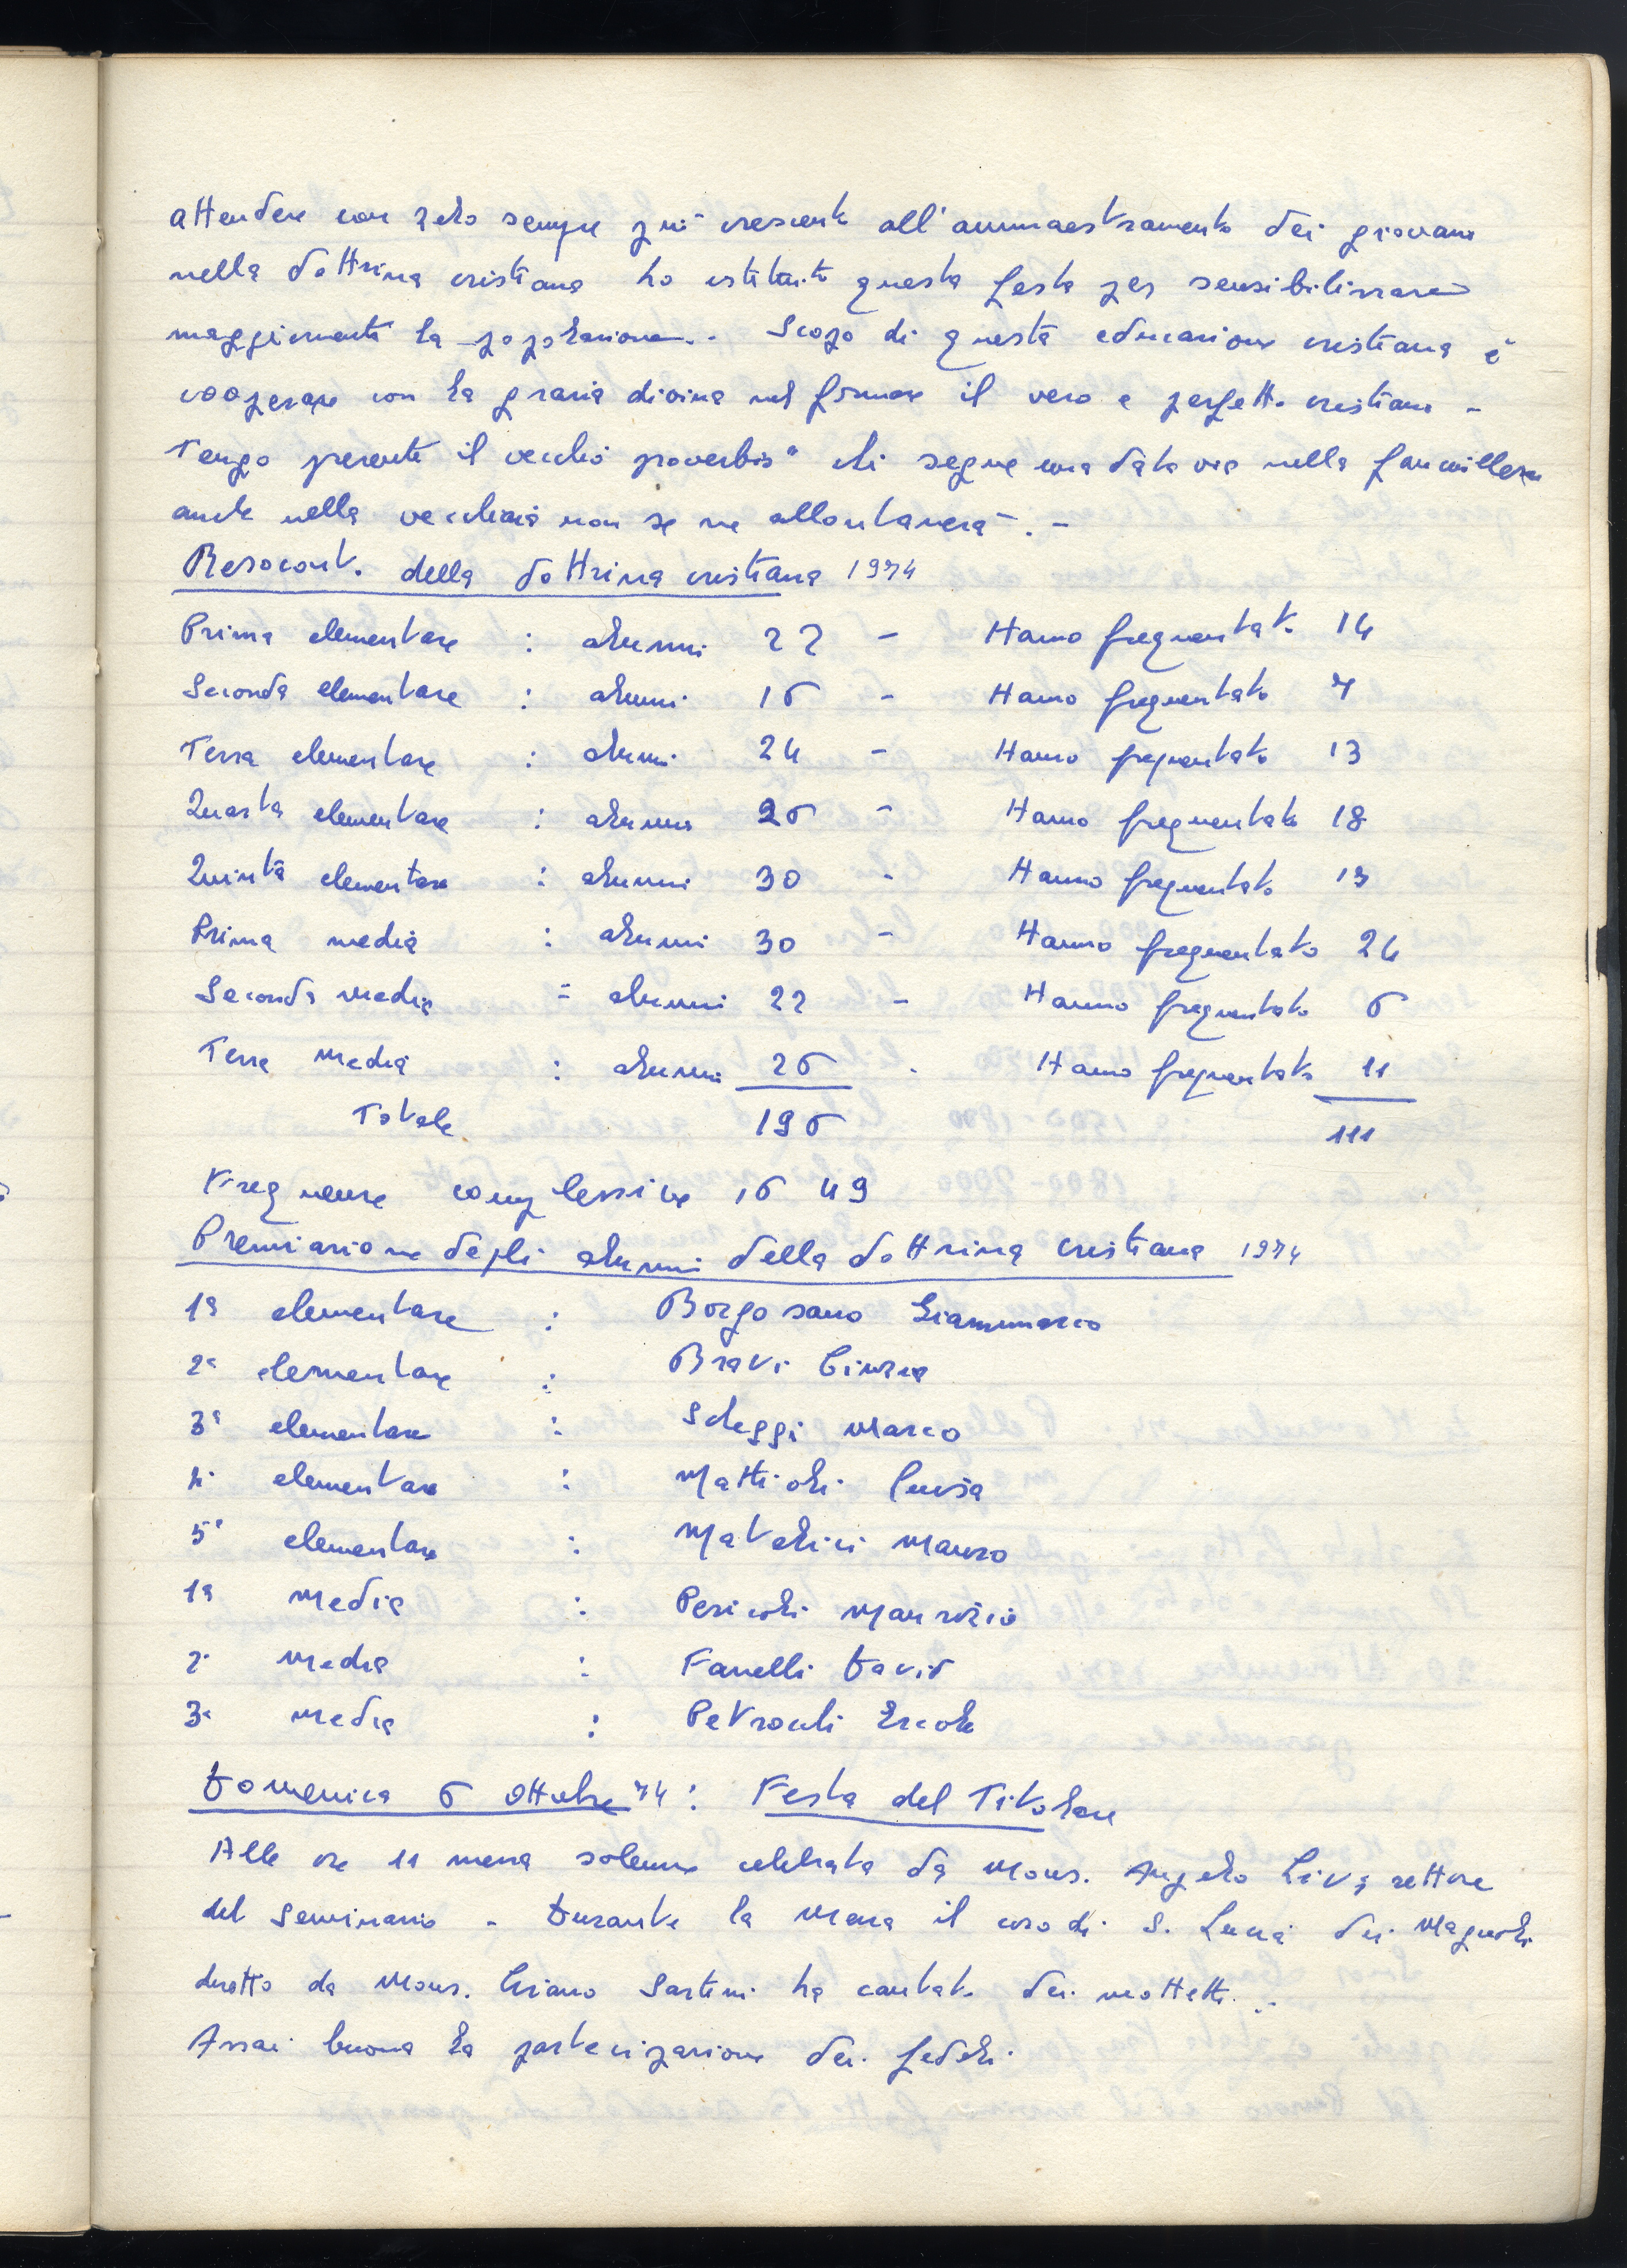 attendere con zelo sempre più crescente all'ammaestramento dei giovani
nella dottrina cristiana ho istituito questa festa per sensibilizzare
maggiormente la popolazione. - Scopo di questa educazione cristiana è
cooperare con la grazia divina nel formare il vero e perfetto cristiano -
Tengo presente il vecchio proverbio " chi segue una data via nella fanciullezza
anche nella vecchiaia non se ne allontanerà". -
Resoconto della dottrina cristiana 1974
Prima elementare : alunni 22 - Hanno frequentato 14
Seconda elementare : alunni 16 - Hanno frequentato 7
Terza elementare : alunni 24 - Hanno frequentato 13
Quarta elementare : alunni 26 - Hanno frequentato 18
Quinta elementare : alunni 30 - Hanno frequentato 18
Prima media : alunni 30 - Hanno frequentato 24
Seconda media : alunni 22 - Hanno frequentato 6
Terza media : alunni 26 - Hanno frequentato 11
Totale 196 111
Frequenze complessive 1649
Premiazione degli alunni della dottrina cristiana 1974
1a elementare : Borgosano Gianmarco
2a elementare : Bravi Cinzia
3a elementare : Scheggi Marco
4a elementare : Mattioli Luisa
5a elementare : Matalici Mauro
1a media : Pericoli Maurizio
2a media : Fanelli David
3a media : Petrocchi Ercole
Domenica 6 ottobre 74 : Festa del Titolare
Alle ore 11 messa solenne celebrata da Mons. Angelo Livi rettore
del Seminario - Durante la Messa il coro di S. Lucia dei Magnoli
diretto da Mons. Ciriano Sartini ha cantato dei mottetti. -
Assai buona la partecipazione dei fedeli.